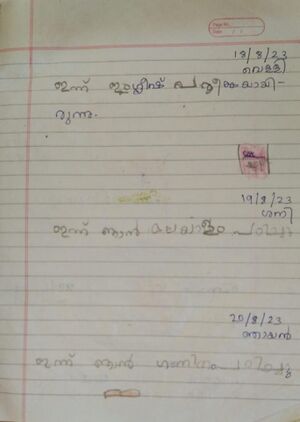 Page No.
Date
18/8/23
വെള്ളി
ഇന്ന് ഇംഗ്ലീഷ് പരീക്ഷയായി-
രുന്നു.
19/8/23
ശനി
ഇന്ന് ഞാൻ മലയാളം പഠിച്ചു
20/8/23
ഞായർ
ഇന്ന് ഞാൻ ഗണിതം പഠിച്ചു